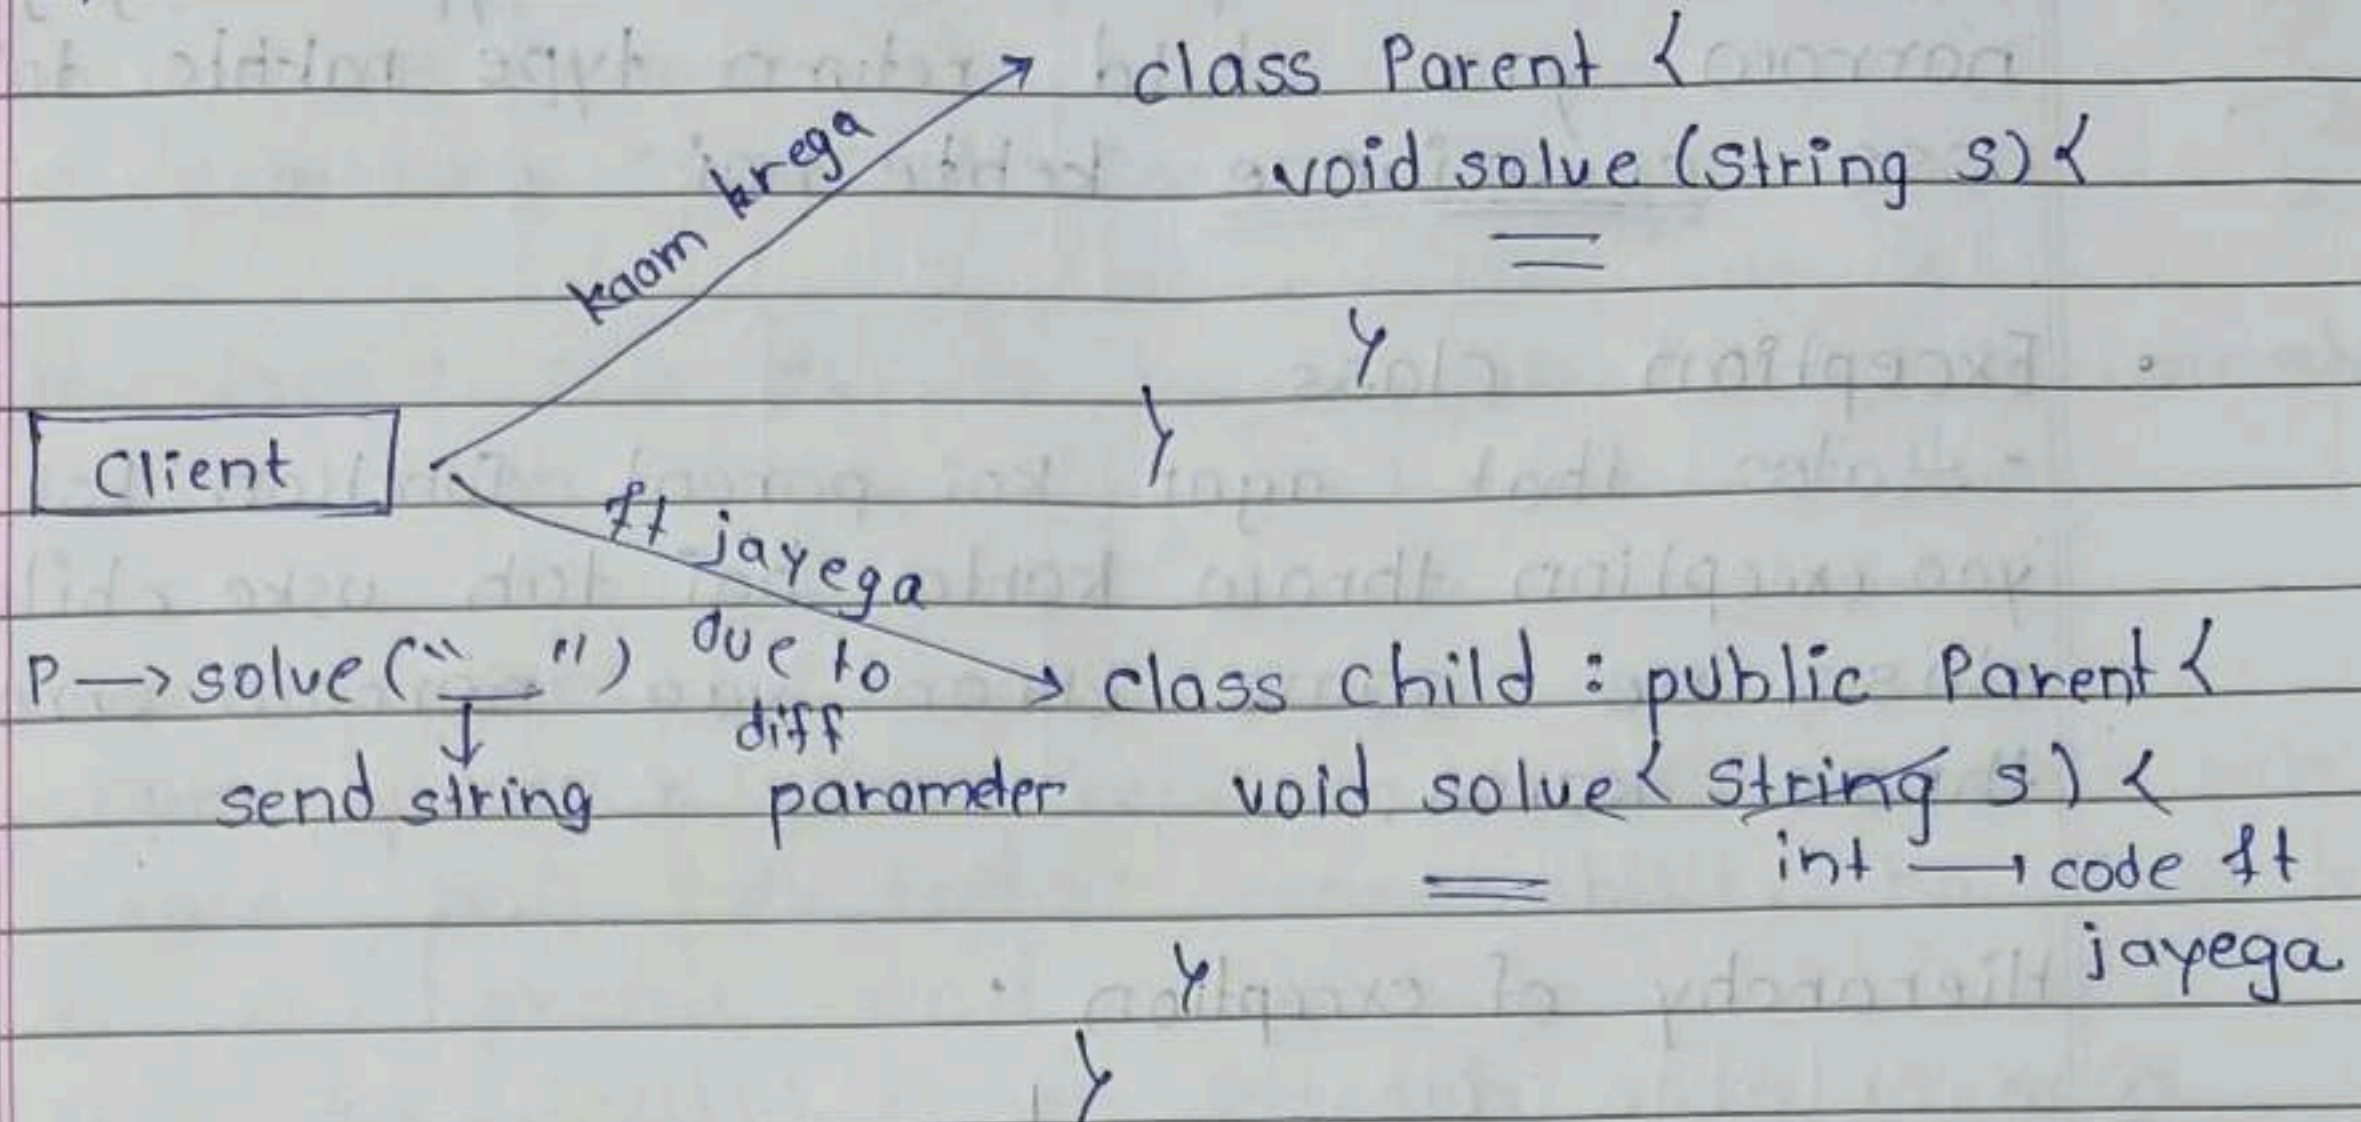 class Parent {
void solve (String S) {
kaam krega
}
}
Client
ft jayega
due to
diff
parameter
P → solve (“ __ ”)
↓
send string
class child : public Parent {
void solve { String s) {
int → code ft
jayega
}
}